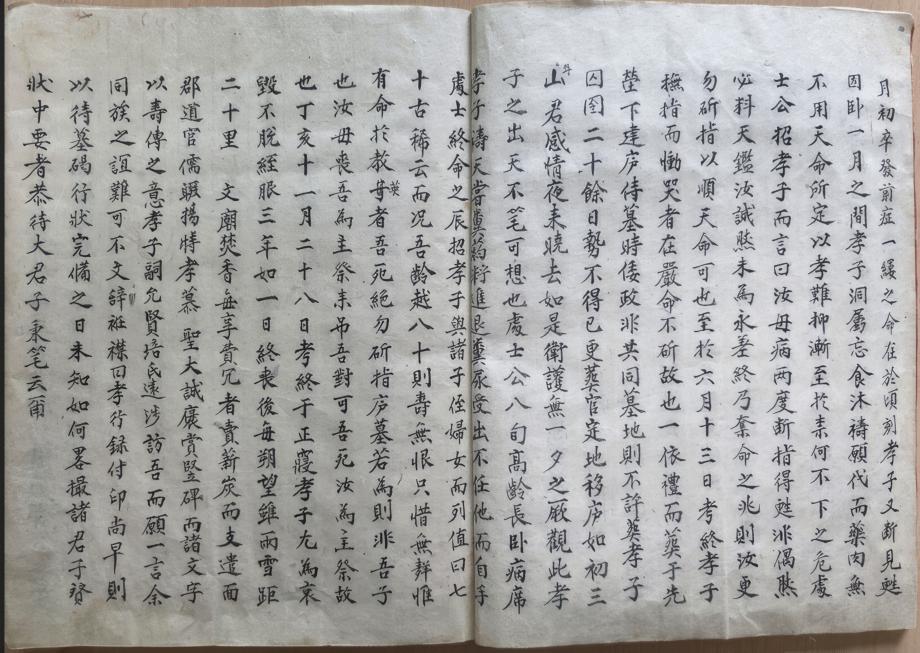 月初卒發前症一縷之命在於頃刻孝子又斷見甦
因臥一月之間孝子洞屬忘食沐禱願代而藥肉無
不用天命所定以孝難抑漸至於末何不下之危處
士公招孝子而言曰汝母病两度断指得甦非偶然
必料天鑑汝誠然未為永差終乃奪命之兆則汝更
勿斫指以順天命可也至於六月十三日考終孝子
撫指而慟哭者在嚴命不斫故也一依禮而葬于先
塋下達庐侍墓時倭政非其同墓地則不許葬孝子
囚圄二十餘日勢不得已更葬官定地移庐如初三
山君感情夜来曉去如是衛護無一夕之厥觀此孝
子之出天不笔可想也處士公八旬高齡長卧病席
孝子濤天嘗糞药籽進退溲尿受出不任他而自手
處士終命之辰招孝子與諸子侄婦女而列值曰七
十古稀云而况吾齡越八十則壽無恨只惜無群惟
有命於教母者吾死絕勿斫指庐墓若為則非吾子
也汝母喪吾為主祭未吊吾對可吾死汝為主祭故
也丁亥十一月二十八日考終于正寢孝子尤為哀
毀不脫絰服三年如一日終喪後每朔望雖雨雪距
二十里 文廟焚香每享費冗者賣薪炭而支遣面
郡道官儒賜揚特孝慕 聖大誠褒賞竪碑而諸文字
以壽傳之意孝子詞允賢培氏遠涉訪吾而願一言余
同族之誼難可不文辭袵襟曰孝行録付印尚早則
以待墓碣行狀完備之日未知如何畧撮諸君子贊
狀中要者恭待大君子秉笔云甭